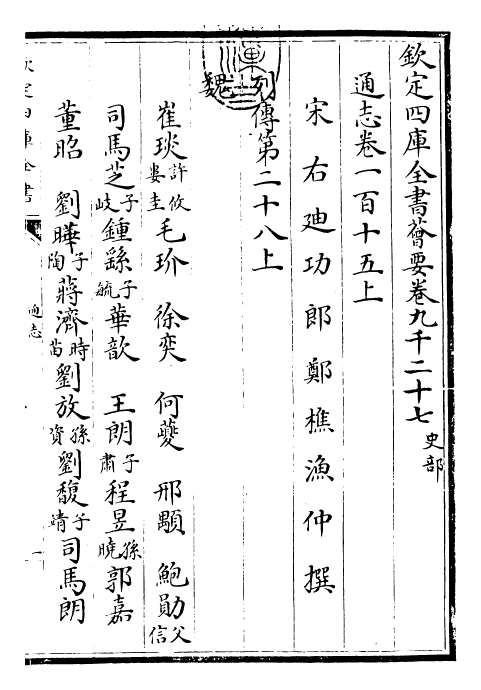 欽定四庫全書薈要卷九千二十七史部
通志卷一百十五上
宋右廸功郎鄭樵漁仲撰
列傳第二十八上
魏
崔琰許攸婁圭毛玠徐奕何夔邢顒鮑勛父信
司馬芝子岐鍾繇子毓華歆王朗子肅程昱孫曉郭嘉
董昭劉曄子陶蔣濟時苗劉放孫資劉馥子靖司馬朗
欽定四庫全書
通志
一